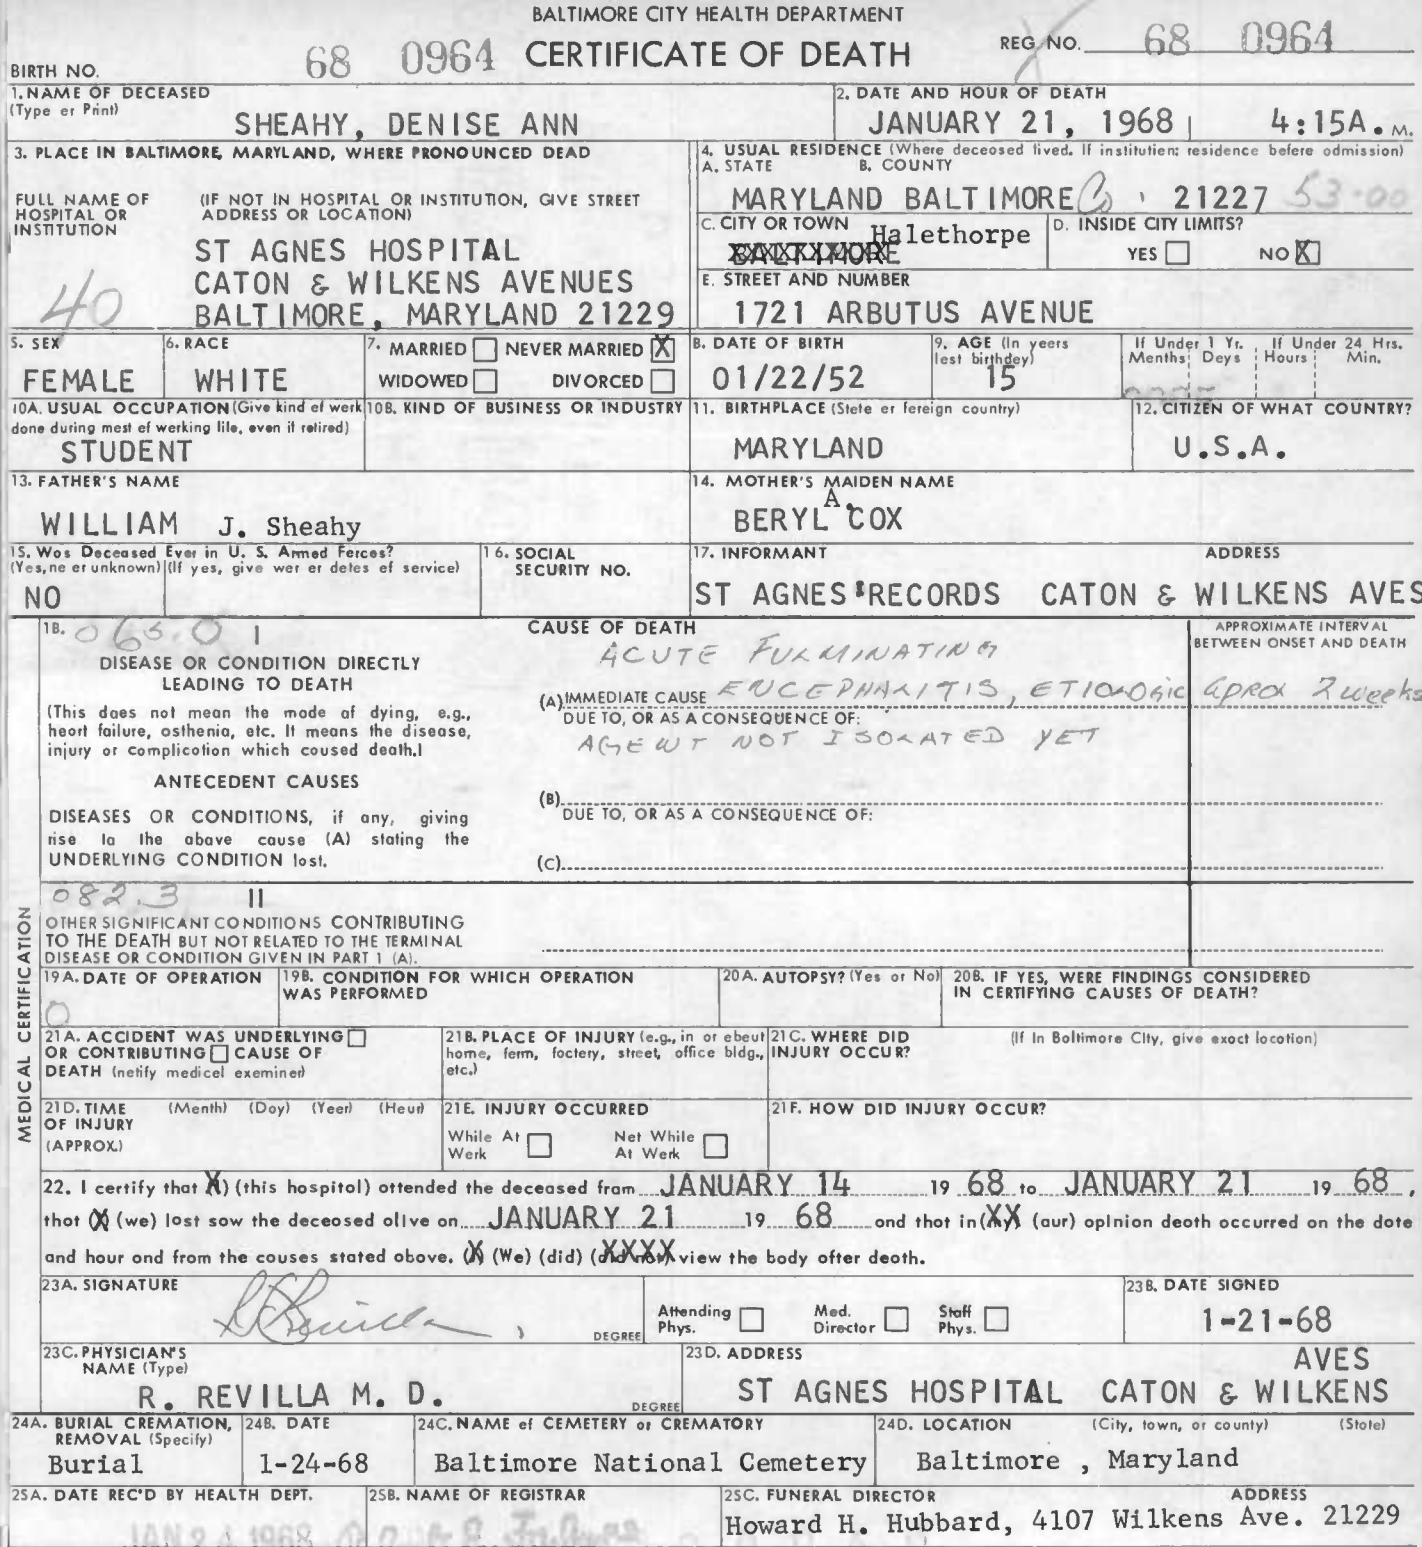 BALTIMORE CITY HEALTH DEPARTMENT
68 0964 CERTIFICATE OF DEATH REG. NO. 68 0964
BIRTH NO.
1. NAME OF DECEASED
(Type or Print)
SHEAHY, DENISE ANN
2. DATE AND HOUR OF DEATH
JANUARY 21, 1968 4:15A. M.
3. PLACE IN BALTIMORE, MARYLAND, WHERE PRONOUNCED DEAD
FULL NAME OF HOSPITAL OR INSTITUTION
(IF NOT IN HOSPITAL OR INSTITUTION, GIVE STREET ADDRESS OR LOCATION)
ST AGNES HOSPITAL
CATON & WILKENS AVENUES
BALTIMORE, MARYLAND 21229
40
4. USUAL RESIDENCE (Where deceased lived. If institution: residence before admission)
A. STATE B. COUNTY
MARYLAND BALTIMORE Co. 21227 53-00
C. CITY OR TOWN
BALTIMORE Halethorpe
D. INSIDE CITY LIMITS?
YES NO X
E. STREET AND NUMBER
1721 ARBUTUS AVENUE
5. SEX
FEMALE
6. RACE
WHITE
7. MARRIED NEVER MARRIED X
WIDOWED DIVORCED
8. DATE OF BIRTH
01/22/52
9. AGE (In years last birthday)
15
If Under 1 Yr. If Under 24 Hrs.
Months Days Hours Min.
10A. USUAL OCCUPATION (Give kind of work
done during most of working life, even if retired)
STUDENT
10B. KIND OF BUSINESS OR INDUSTRY
11. BIRTHPLACE (State or foreign country)
MARYLAND
12. CITIZEN OF WHAT COUNTRY?
U.S.A.
13. FATHER'S NAME
WILLIAM J. Sheahy
14. MOTHER'S MAIDEN NAME
BERYL A. COX
15. Was Deceased Ever in U. S. Armed Forces?
(Yes, no or unknown) (If yes, give war or dates of service)
NO
16. SOCIAL SECURITY NO.
17. INFORMANT ADDRESS
ST AGNES' RECORDS CATON & WILKENS AVES
18. 065.0 I
DISEASE OR CONDITION DIRECTLY
LEADING TO DEATH
(This does not mean the mode of dying, e.g.,
heart failure, asthenia, etc. It means the disease,
injury or complication which caused death.)
ANTECEDENT CAUSES
DISEASES OR CONDITIONS, if any, giving
rise to the above cause (A) stating the
UNDERLYING CONDITION last.
CAUSE OF DEATH
ACUTE FULMINATING
(A) IMMEDIATE CAUSE ENCEPHALITIS, ETIOLOGIC
DUE TO, OR AS A CONSEQUENCE OF:
AGENT NOT ISOLATED YET
(B)
DUE TO, OR AS A CONSEQUENCE OF:
(C)
APPROXIMATE INTERVAL
BETWEEN ONSET AND DEATH
aprox 2 weeks
082.3 II
OTHER SIGNIFICANT CONDITIONS CONTRIBUTING
TO THE DEATH BUT NOT RELATED TO THE TERMINAL
DISEASE OR CONDITION GIVEN IN PART 1 (A).
MEDICAL CERTIFICATION
19A. DATE OF OPERATION
0
19B. CONDITION FOR WHICH OPERATION
WAS PERFORMED
20A. AUTOPSY? (Yes or No)
20B. IF YES, WERE FINDINGS CONSIDERED
IN CERTIFYING CAUSES OF DEATH?
21A. ACCIDENT WAS UNDERLYING
OR CONTRIBUTING CAUSE OF
DEATH (notify medical examiner)
21B. PLACE OF INJURY (e.g., in or about
home, farm, factory, street, office bldg.,
etc.)
21C. WHERE DID (If In Baltimore City, give exact location)
INJURY OCCUR?
21D. TIME (Month) (Day) (Year) (Hour)
OF INJURY
(APPROX.)
21E. INJURY OCCURRED
While At Work Not While At Work
21F. HOW DID INJURY OCCUR?
22. I certify that X) (this hospital) attended the deceased from JANUARY 14 19 68 to JANUARY 21 19 68,
that (X) (we) last saw the deceased alive on JANUARY 21 19 68 and that in (XX) (our) opinion death occurred on the date
and hour and from the causes stated above. (X) (We) (did) (XXXX) view the body after death.
23A. SIGNATURE
R Revilla, DEGREE
Attending Phys. Med. Director Staff Phys.
23B. DATE SIGNED
1-21-68
23C. PHYSICIAN'S
NAME (Type)
R. REVILLA M. D. DEGREE
23D. ADDRESS AVES
ST AGNES HOSPITAL CATON & WILKENS
24A. BURIAL CREMATION,
REMOVAL (Specify)
Burial
24B. DATE
1-24-68
24C. NAME of CEMETERY or CREMATORY
Baltimore National Cemetery
24D. LOCATION (City, town, or county) (State)
Baltimore , Maryland
25A. DATE REC'D BY HEALTH DEPT.
JAN 24 1968
25B. NAME OF REGISTRAR
25C. FUNERAL DIRECTOR ADDRESS
Howard H. Hubbard, 4107 Wilkens Ave. 21229